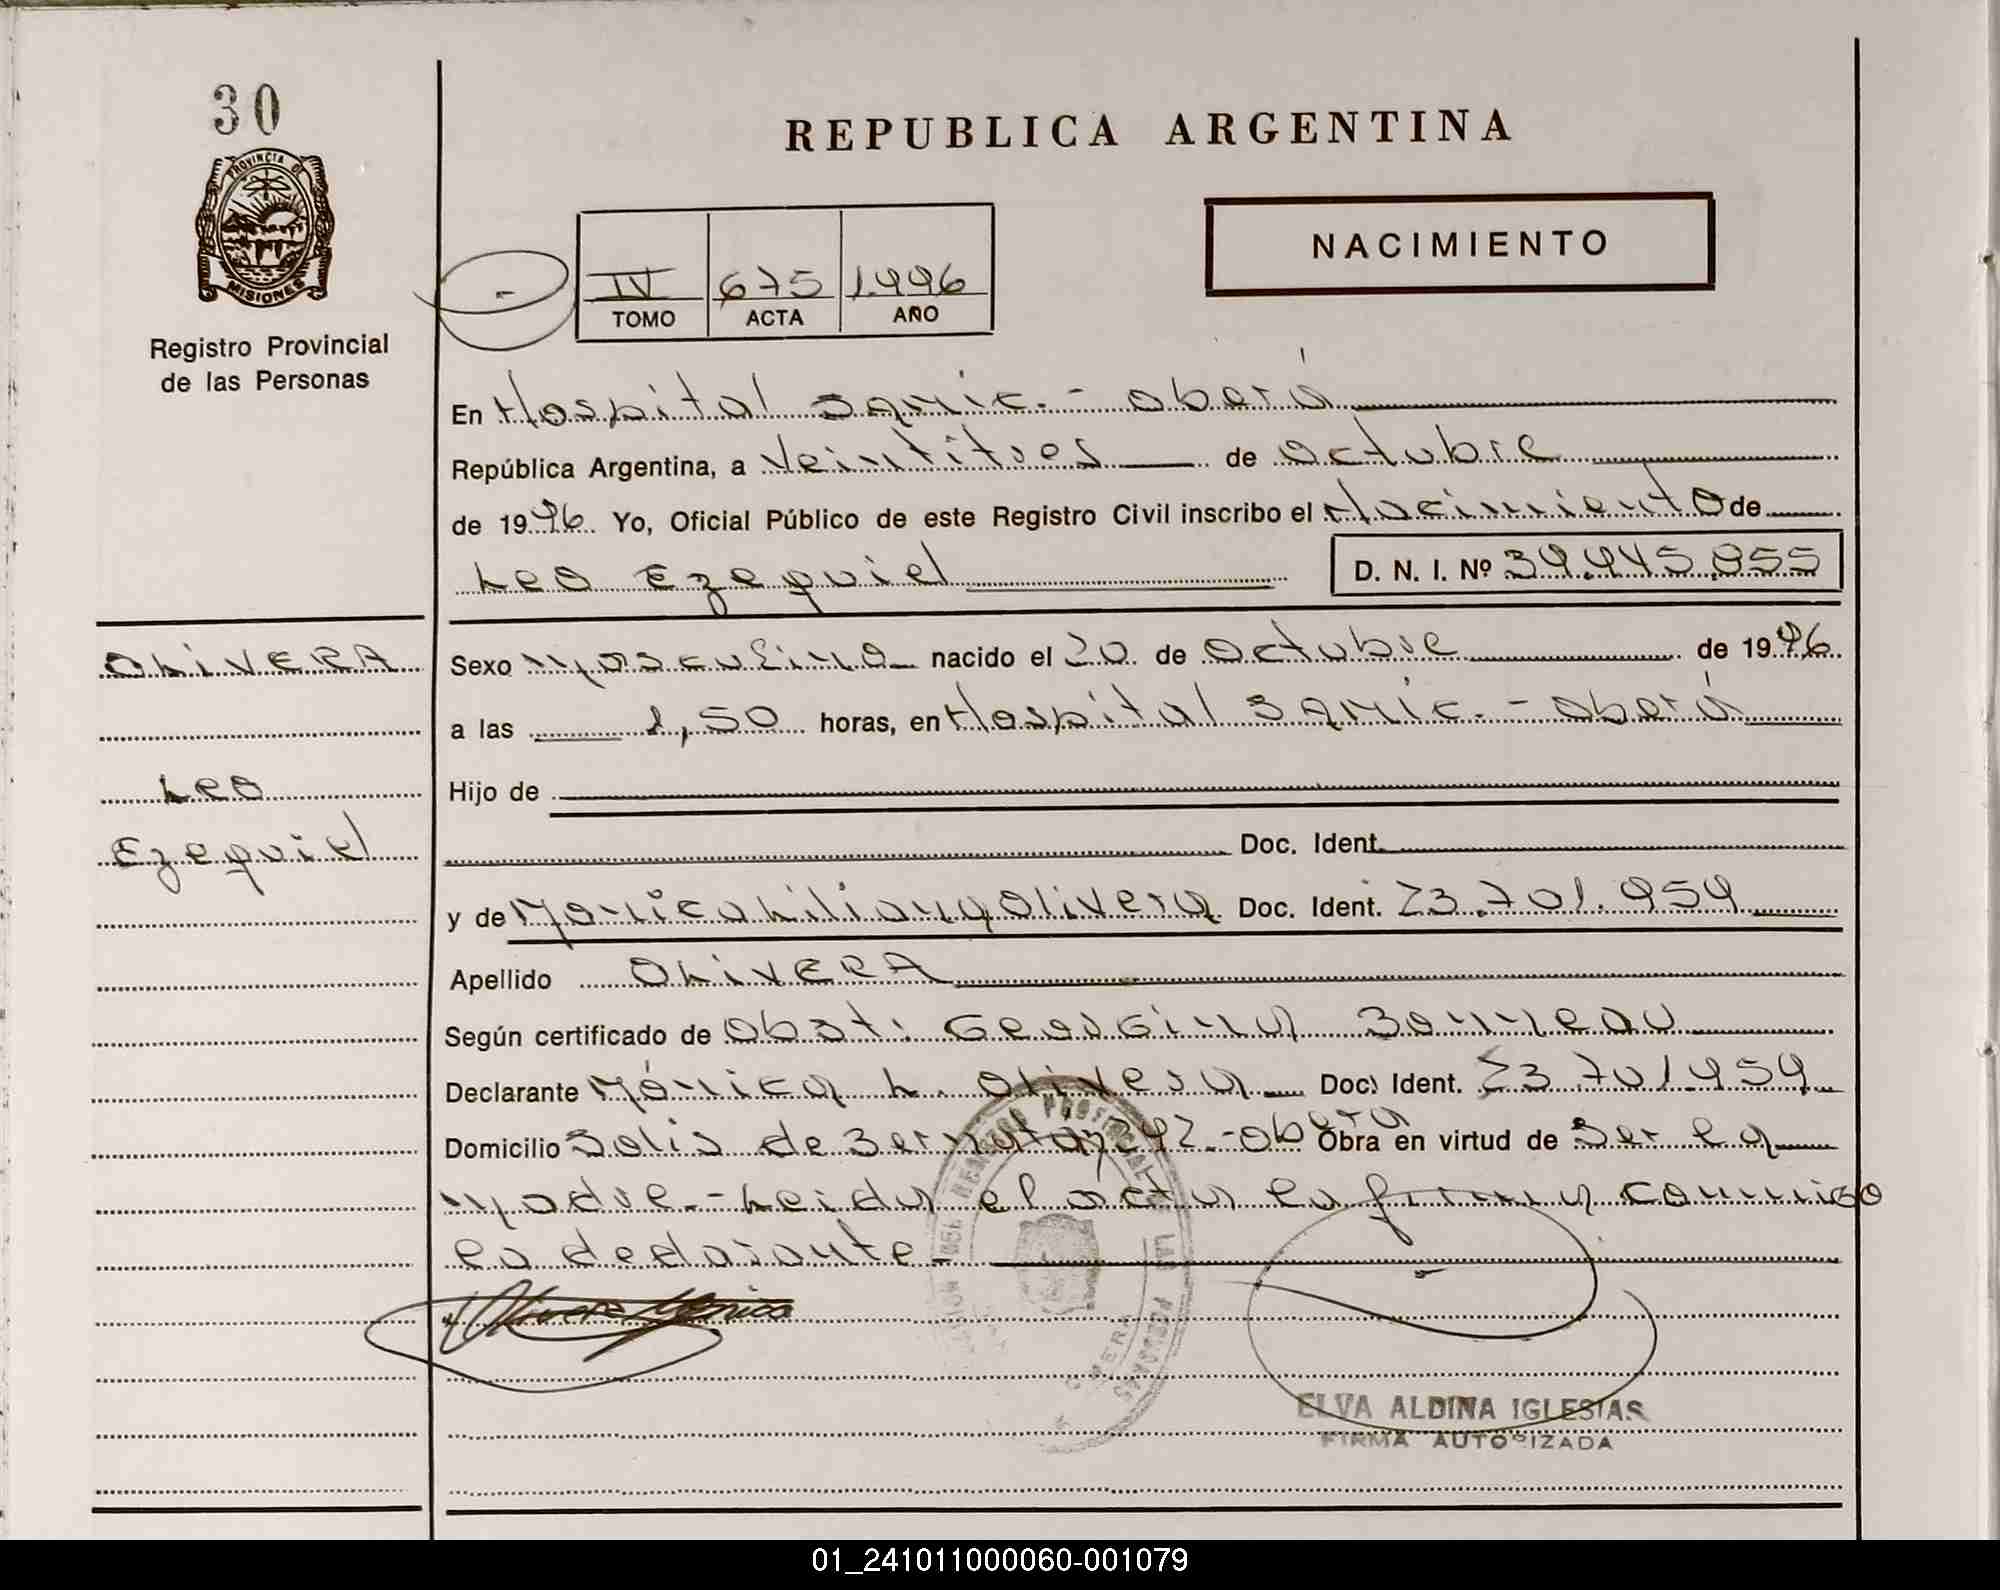 30
PROVINCIA DE
MISIONES
Registro Provincial
de las Personas
REPUBLICA ARGENTINA
NACIMIENTO
IV 675 1.996
TOMO ACTA AÑO
En Hospital SAMIC. - Oberá
República Argentina, a Veintitres de Octubre
de 1996. Yo, Oficial Público de este Registro Civil inscribo el Nacimiento de
Leo Ezequiel D. N. I. Nº 39.945.855
OLIVERA
Leo
Ezequiel
Sexo Masculino nacido el 20 de Octubre de 1996.
a las 1,50 horas, en Hospital SAMIC. - Oberá
Hijo de
Doc. Ident.
y de Monica Liliana Olivera Doc. Ident. 23.701.959
Apellido OLIVERA
Según certificado de Obst: Georgina Bonneau
Declarante Mónica L. Olivera Doc. Ident. 23.701.959
Domicilio Solis de 242.-Oberá Obra en virtud de Ser la
Madre.-Leida el acta la firma conmigo
la declarante.-
Olivera Monica
REGISTRO PROVINCIAL
LAS PERSONAS
OBERA
ELVA ALDINA IGLESIAS
FIRMA AUTORIZADA
01_241011000060-001079